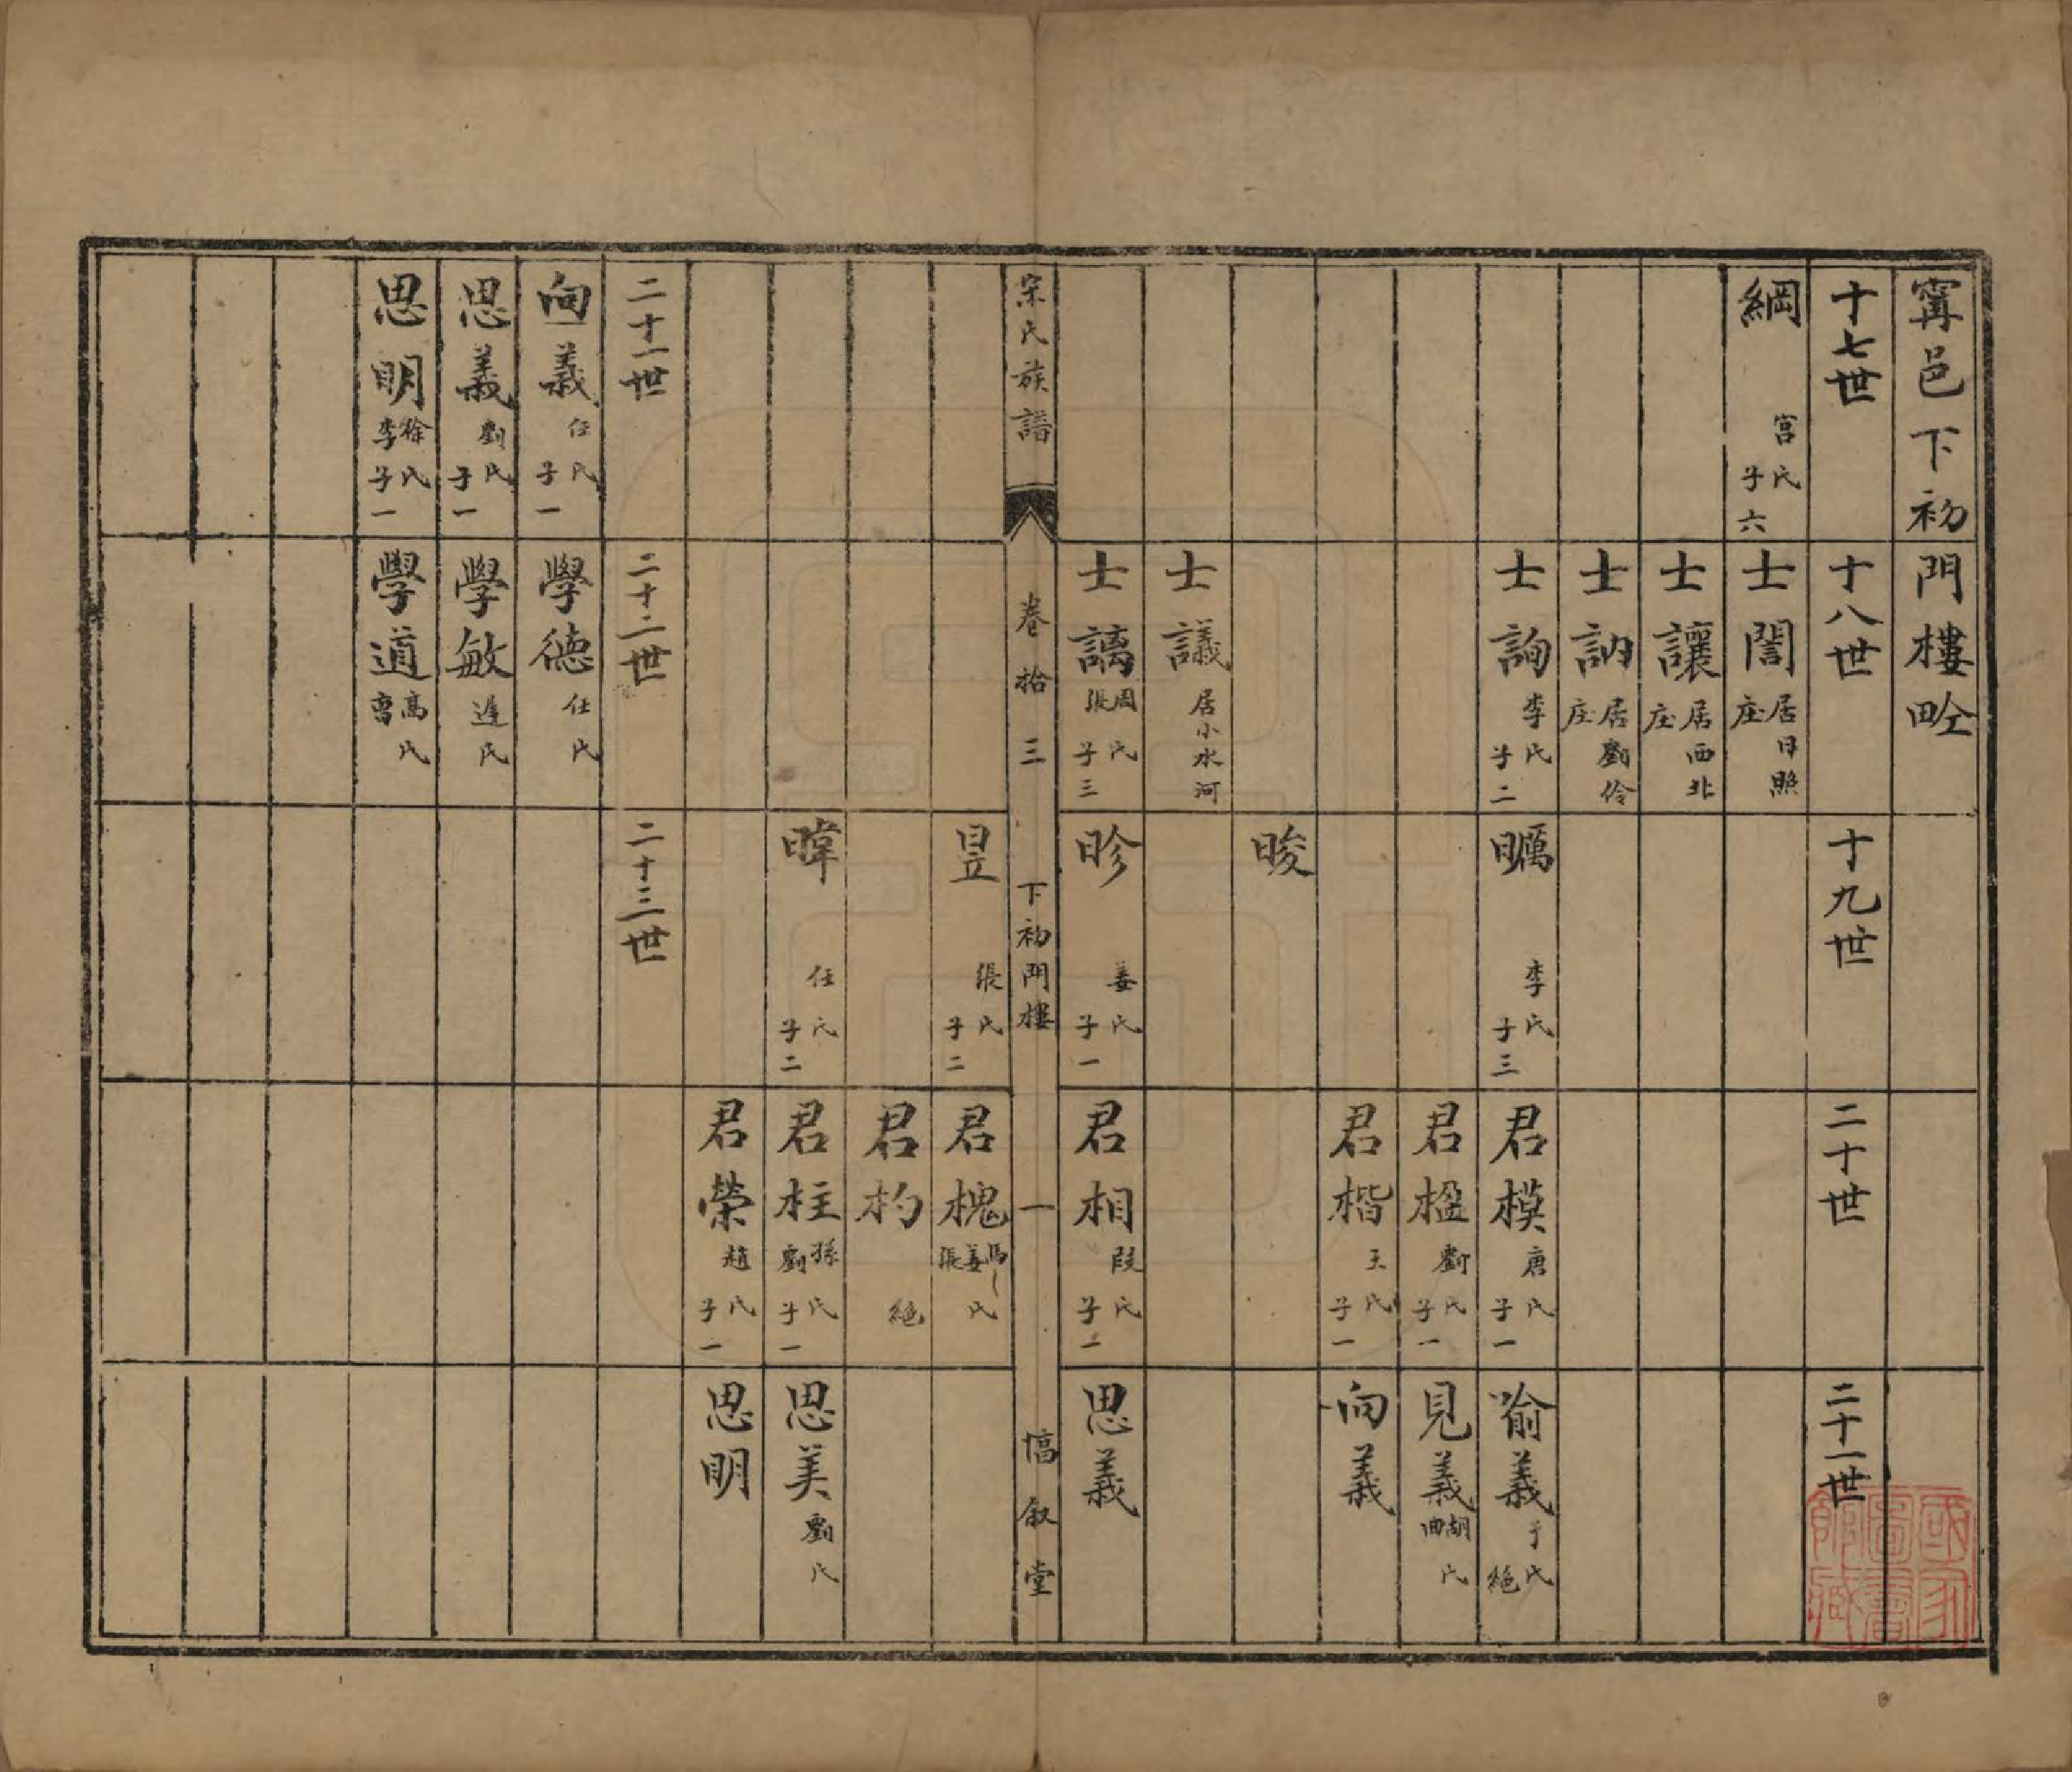 甯邑下初門樓㽏
十七世
十八世
十九世
二十世
二十一世
綱 宮氏 子六
士誾 居日照庄
士讓 居西北庄
士訥 居劉伶庄
士詢 李氏 子二
曞 李氏 子三
君模 唐氏 子一
喻義 于氏 絕
君楹 劉氏 子一
見義 胡曲氏
君楷 王氏 子一
向義
晙
士議 居小水河
士謧 周張氏 子三
昣 姜氏 子一
君相 段氏 子一
思義
宗氏族譜
卷拾三
下初門樓
一
惇敘堂
昱 張氏 子二
君槐 馬姜張氏
君杓 絕
暐 任氏 子二
君柱 孫劉氏 子一
思美 劉氏
君榮 趙氏 子一
思明
二十一世
二十二世
二十三世
向義 任氏 子一
學德 任氏
思義 劉氏 子一
學敏 遲氏
思明 徐李氏 子一
學道 高曹氏
國家圖書館藏